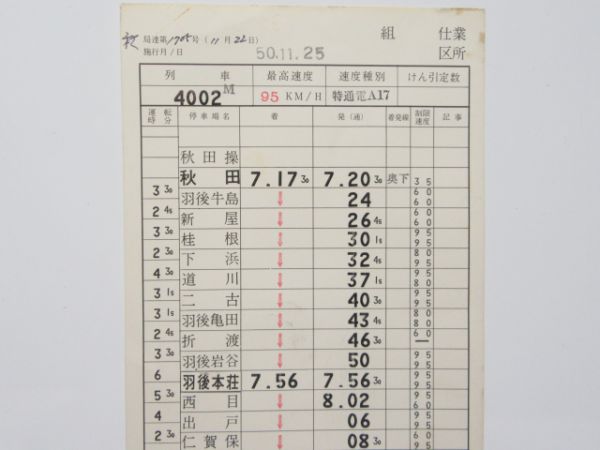 局達第1705号(11月22日) 組 仕業
施行 月/日 50.11.25 区所
列車 最高速度 速度種別 けん引定数
4002M 95 KM/H 特通電A17
運転時分 停車場名 着 発(通) 着発線 制限速度 記事
秋田操
秋田 7.17 30 7.20 30 奥下 35
3 30 羽後牛島 ↓ 24 60 60
2 45 新屋 ↓ 26 45 60 60
3 30 桂根 ↓ 30 15 95 95
2 30 下浜 ↓ 32 45 80 95
4 30 道川 ↓ 37 15 95 95
3 15 二古 ↓ 40 30 95 95
3 15 羽後亀田 ↓ 43 45 80 80
2 45 折渡 ↓ 46 30 60 —
3 30 羽後岩谷 ↓ 50 95 95
6 羽後本荘 7.56 7.56 30 95 95
5 30 西目 ↓ 8.02 95 60
4 出戸 ↓ 06 95 95
2 30 仁賀保 ↓ 08 30 95 60